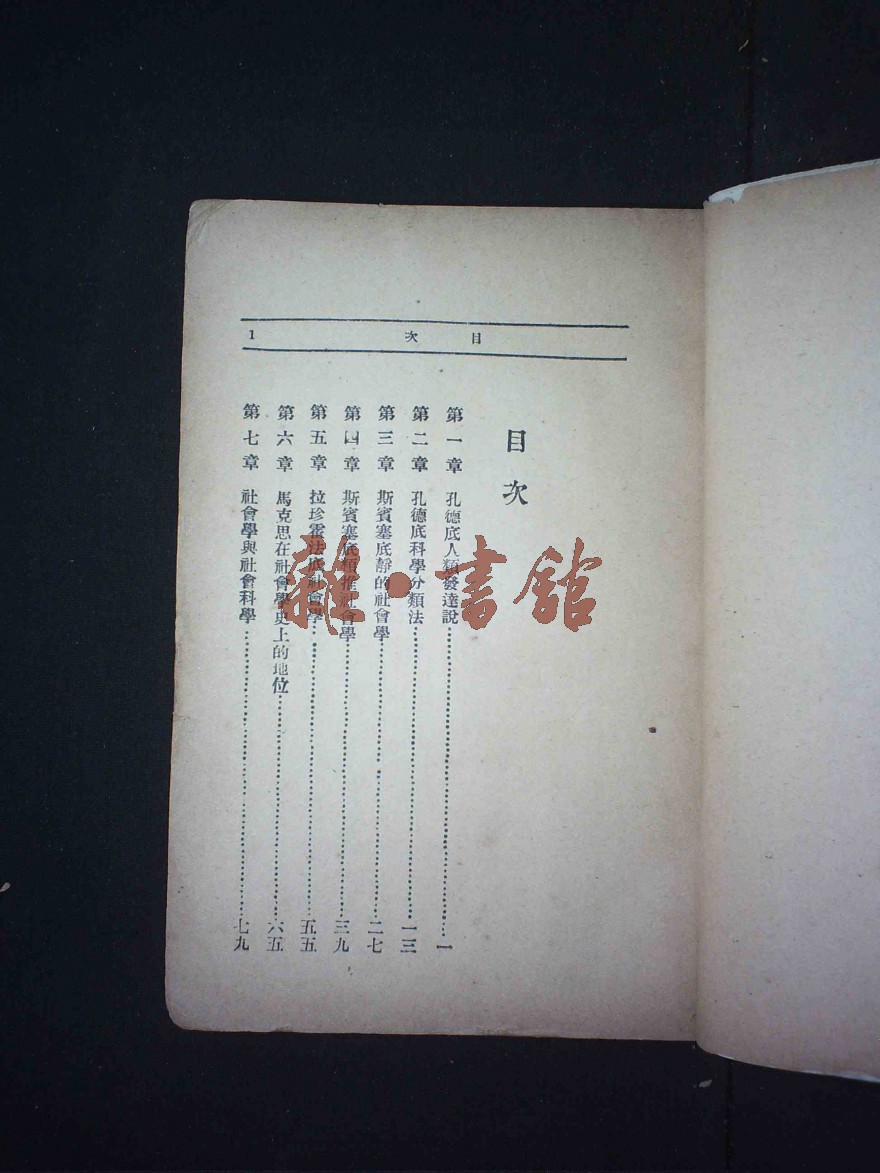 目次 1
目次
第一章 孔德底人類發達說……一
第二章 孔德底科學分類法……一三
第三章 斯賓塞底靜的社會學……二七
第四章 斯賓塞底 推社會學……三九
第五章 拉珍霍法底社會學……五五
第六章 馬克思在社會學史上的地位……六五
第七章 社會學與社會科學……七九
雜·書館